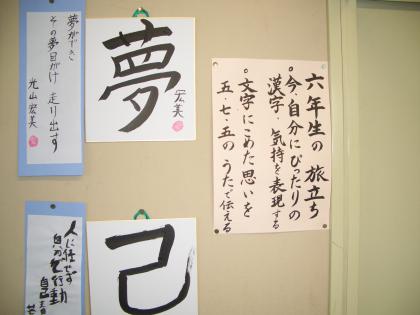 六年生の旅立ち
。今、自分にぴったりの
漢字、気持を表現する
。文字にこめた思いを
五・七・五のうたで伝える
夢
宏美
夢ができ
その夢目がけ 走り出す
光山宏美
己
人に任せず